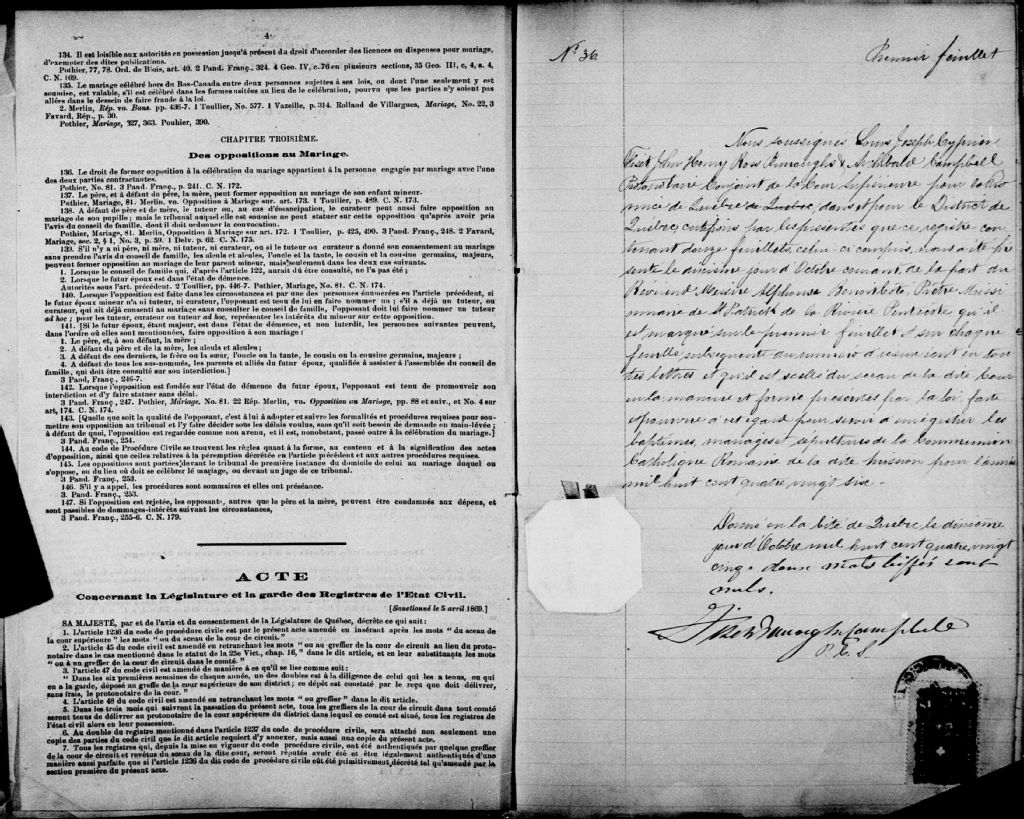 4
134. Il est loisible aux autorités en possession jusqu'à présent du droit d'accorder des licences ou dispenses pour mariage,
d'exempter des dites publications.
Pothier, 77, 78. Ord. de Blois, art. 40. 2 Pand. Franç., 324. 4 Geo. IV, c. 76 en plusieurs sections, 35 Geo. III, c, 4, s. 4,
C. N. 169.
135. Le mariage célébré hors du Bas-Canada entre deux personnes sujettes à ses lois, ou dont l'une seulement y est
soumise, est valable, s'il est célébré dans les formes usitées au lieu de la célébration, pourvu que les parties n'y soient pas
allées dans le dessein de faire fraude à la loi.
2. Merlin, Rép. vo. Bans. pp. 436-7. 1 Toullier, No. 577. 1 Vazeille, p. 314. Rolland de Villargues, Mariage, No. 22, 3
Favard, Rép., p. 30.
Pothier, Mariage, 327, 363. Pouhier, 390.
CHAPITRE TROISIÈME.
Des oppositions au Mariage.
136. Le droit de former opposition à la célébration du mariage appartient à la personne engagée par mariage avec l'une
des deux parties contractantes.
Pothier, No. 81. 3 Pand. Franç., p. 241. C. N. 172.
137. Le père, et à défaut du père, la mère, peut former opposition au mariage de son enfant mineur.
Pothier, Mariage, 81. Merlin, vo. Opposition à Mariage sur. art. 173. 1 Toullier, p. 489. C. N. 173.
138. A défaut de père et de mère, le tuteur ou, au cas d'émancipation, le curateur peut aussi faire opposition au
mariage de son pupille; mais le tribunal auquel elle est soumise ne peut statuer sur cette opposition qu'après avoir pris
l'avis du conseil de famille, dont il doit ordonner la convocation.
Pothier, Mariage, 81. Merlin, Opposition à Mariage sur art. 172. 1 Toullier, p. 425, 490. 3 Pand. Franç., 248. 2 Favard,
Mariage, sec. 2, § 1, No. 3, p. 59. 1 Delv. p. 62. C. N. 175.
139. S'il n'y a ni père, ni mère, ni tuteur, ni curateur, ou si le tuteur ou curateur a donné son consentement au mariage
sans prendre l'avis du conseil de famille, les aïeuls et aïeules, l'oncle et la tante, le cousin et la cousine germains, majeurs,
peuvent former opposition au mariage de leur parent mineur, mais seulement dans les deux cas suivants.
1. Lorsque le conseil de famille qui, d'après l'article 122, aurait dû être consulté, ne l'a pas été;
2. Lorsque le futur époux est dans l'état de démence.
Autorités sous l'art. précédent. 2 Toullier, pp. 446-7. Pothier, Mariage, No. 81. C. N. 174.
140. Lorsque l'opposition est faite dans les circonstances et par une des personnes énumérées en l'article précédent, si
le futur époux mineur n'a ni tuteur, ni curateur, l'opposant est tenu de lui en faire nommer un; s'il a déjà un tuteur, ou
curateur, qui ait déjà consenti au mariage sans consulter le conseil de famille, l'opposant doit lui faire nommer un tuteur
ad hoc; pour les tuteur, curateur ou tuteur ad hoc, représenter les intérêts du mineur sur cette opposition.
141. [Si le futur époux, étant majeur, est dans l'état de démence, et non interdit, les personnes suivantes peuvent,
dans l'ordre où elles sont mentionnées, faire opposition à son mariage:
1. Le père, et, à son défaut, la mère;
2. A défaut du père et de la mère, les aïeuls et aïeules;
3. A défaut de ces derniers, le frère ou la sœur, l'oncle ou la tante, le cousin ou la cousine germains, majeurs;
4. A défaut de tous les sus-nommés, les parents et alliés du futur époux, qualifiés à assister à l'assemblée du conseil de
famille, qui doit être consulté sur son interdiction.]
3 Pand. Franç., 246-7.
142. Lorsque l'opposition est fondée sur l'état de démence du futur époux, l'opposant est tenu de promouvoir son
interdiction et d'y faire statuer sans délai.
3 Pand. Franç., 247. Pothier, Mariage, No. 81. 22 Rép. Merlin, vo. Opposition au Mariage, pp. 88 et suiv., et No. 4 sur
art, 174. C. N. 174.
143. [Quelle que soit la qualité de l'opposant, c'est à lui à adopter et suivre les formalités et procédures requises pour soumettre
son opposition au tribunal et l'y faire décider sous les délais voulus, sans qu'il soit besoin de demande en main-levée;
à défaut de quoi, l'opposition est regardée comme non avenue, et il est, nonobstant, passé outre à la célébration du mariage.]
3 Pand. Franç., 254.
144. Au code de Procédure Civile se trouvent les règles quant à la forme, au contenu et à la signification des actes
d'opposition, ainsi que celles relatives à la péremption décrétée en l'article précédent et aux autres procédures requises.
145. Les oppositions sont portées devant le tribunal de première instance du domicile de celui au mariage duquel on
s'oppose, ou du lieu où doit se célébrer le mariage, ou devant un juge de ce tribunal.
3 Pand. Franç., 253.
146. S'il y a appel, les procédures sont sommaires et elles ont préséance.
3. Pand. Franç., 253.
147. Si l'opposition est rejetée, les opposants, autres que le père et la mère, peuvent être condamnés aux dépens, et
sont passibles de dommages-intérêts suivant les circonstances,
3 Pand. Franç., 255-6. C. N. 179.
ACTE
Concernant la Législature et la garde des Registres de l'Etat Civil.
[Sanctionné le 5 avril 1869.]
SA MAJESTÉ, par et de l'avis et du consentement de la Législature de Québec, décrète ce qui suit:
1. L'article 1236 du code de procédure civile est par le présent acte amendé en insérant après les mots " du sceau de
la cour supérieure " les mots " ou du sceau de la cour de circuit."
2. L'article 45 du code civil est amendé en retranchant les mots " ou au greffier de la cour de circuit au lieu du protonotaire
dans le cas mentionné dans le statut de la 25e Vict., chap. 16," dans le dit article, et en leur substituants les mots
" ou à un greffier de la cour de circuit dans le comté."
3. L'article 47 du code civil est amendé de manière à ce qu'il se lise comme suit:
" Dans les six premières semaines de chaque année, un des doubles est à la diligence de celui qui les a tenus, ou qui
en a la garde, déposé au greffe de la cour supérieure de son district; ce dépôt est constaté par le reçu que doit délivrer,
sans frais, le protonotaire de la cour."
4. L'article 48 du code civil est amendé en retranchant les mots " ou greffier " dans le dit article.
5. Dans les trois mois qui suivront la passation du présent acte, tous les greffiers de la cour de circuit dans tout comté
seront tenus de délivrer au protonotaire de la cour supérieure du district dans lequel ce comté est situé, tous les registres de
l'état civil alors en leur possession.
6. Au double du registre mentionné dans l'article 1237 du code de procédure civile, sera attaché non seulement une
copie des parties du code civil que le dit article requiert d'y annexer, mais aussi une copie du présent acte.
7. Tous les registres qui, depuis la mise en vigueur du code procédure civile, ont été authentiqués par quelque greffier
de la cour de circuit et revêtus du sceau de la dite cour, seront réputés avoir été et être légalement authentiqués d'une
manière aussi parfaite que si l'article 1236 du dis code de procédure civile eût été primitivement décrété tel qu'amendé par la
section première du présent acte.
No. 36.
Premier feuillet
Nous soussignés Louis Joseph Cyprien
Fiset, John Henry Ross Burroughs & Archibald Campbell
Protonotaire Conjoint de la Cour Supérieure pour la Pro
vince de Québec de Quebec dans et pour le District de
Québec certifions par les présentes que ce registre con
tenant douze feuillets, celui ci compris, nous a été pré
senté le dixième jour d'Octobre courant de la part du
Révérend Messire Alphonse Benoit Coté, Prêtre Missi
onnaire de St Patrick de la Rivière Pentecote qu'il
est marqué sur le premier feuillet & sur chaque
feuille subsequente du numéro d'icelui écrit en tou
tes lettres et qu'il est scellé du sceau de la dite Cour
en la manière et forme prescrites par la loi faite
et pourvue à cet égard pour servir à enrégistrer les
baptêmes, mariages & sépultures de la Communion
Catholique Romaine de la dite mission pour l'année
mil huit cent quatre vingt six.
Donné en la Cité de Québec le dixième
jour d'Octobre mil huit cent quatre vingt
cinq. deux mots biffés sont
nuls.
Fiset Burroughs Campbell
P. C. S.